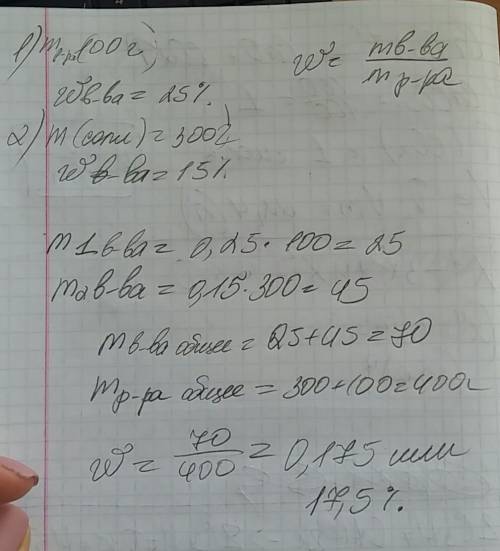 1) m р-ра 100г,
w = m в-ва / m р-ра
w в-ва = 25%.
2) m (соли) = 300г
w в-ва = 15%
m1 в-ва = 0,25 · 100 = 25
m2 в-ва = 0,15 · 300 = 45
m в-ва общее = 25+45 = 70
m р-ра общее = 300+100=400г
w = 70/400 = 0,175 или
17,5%.